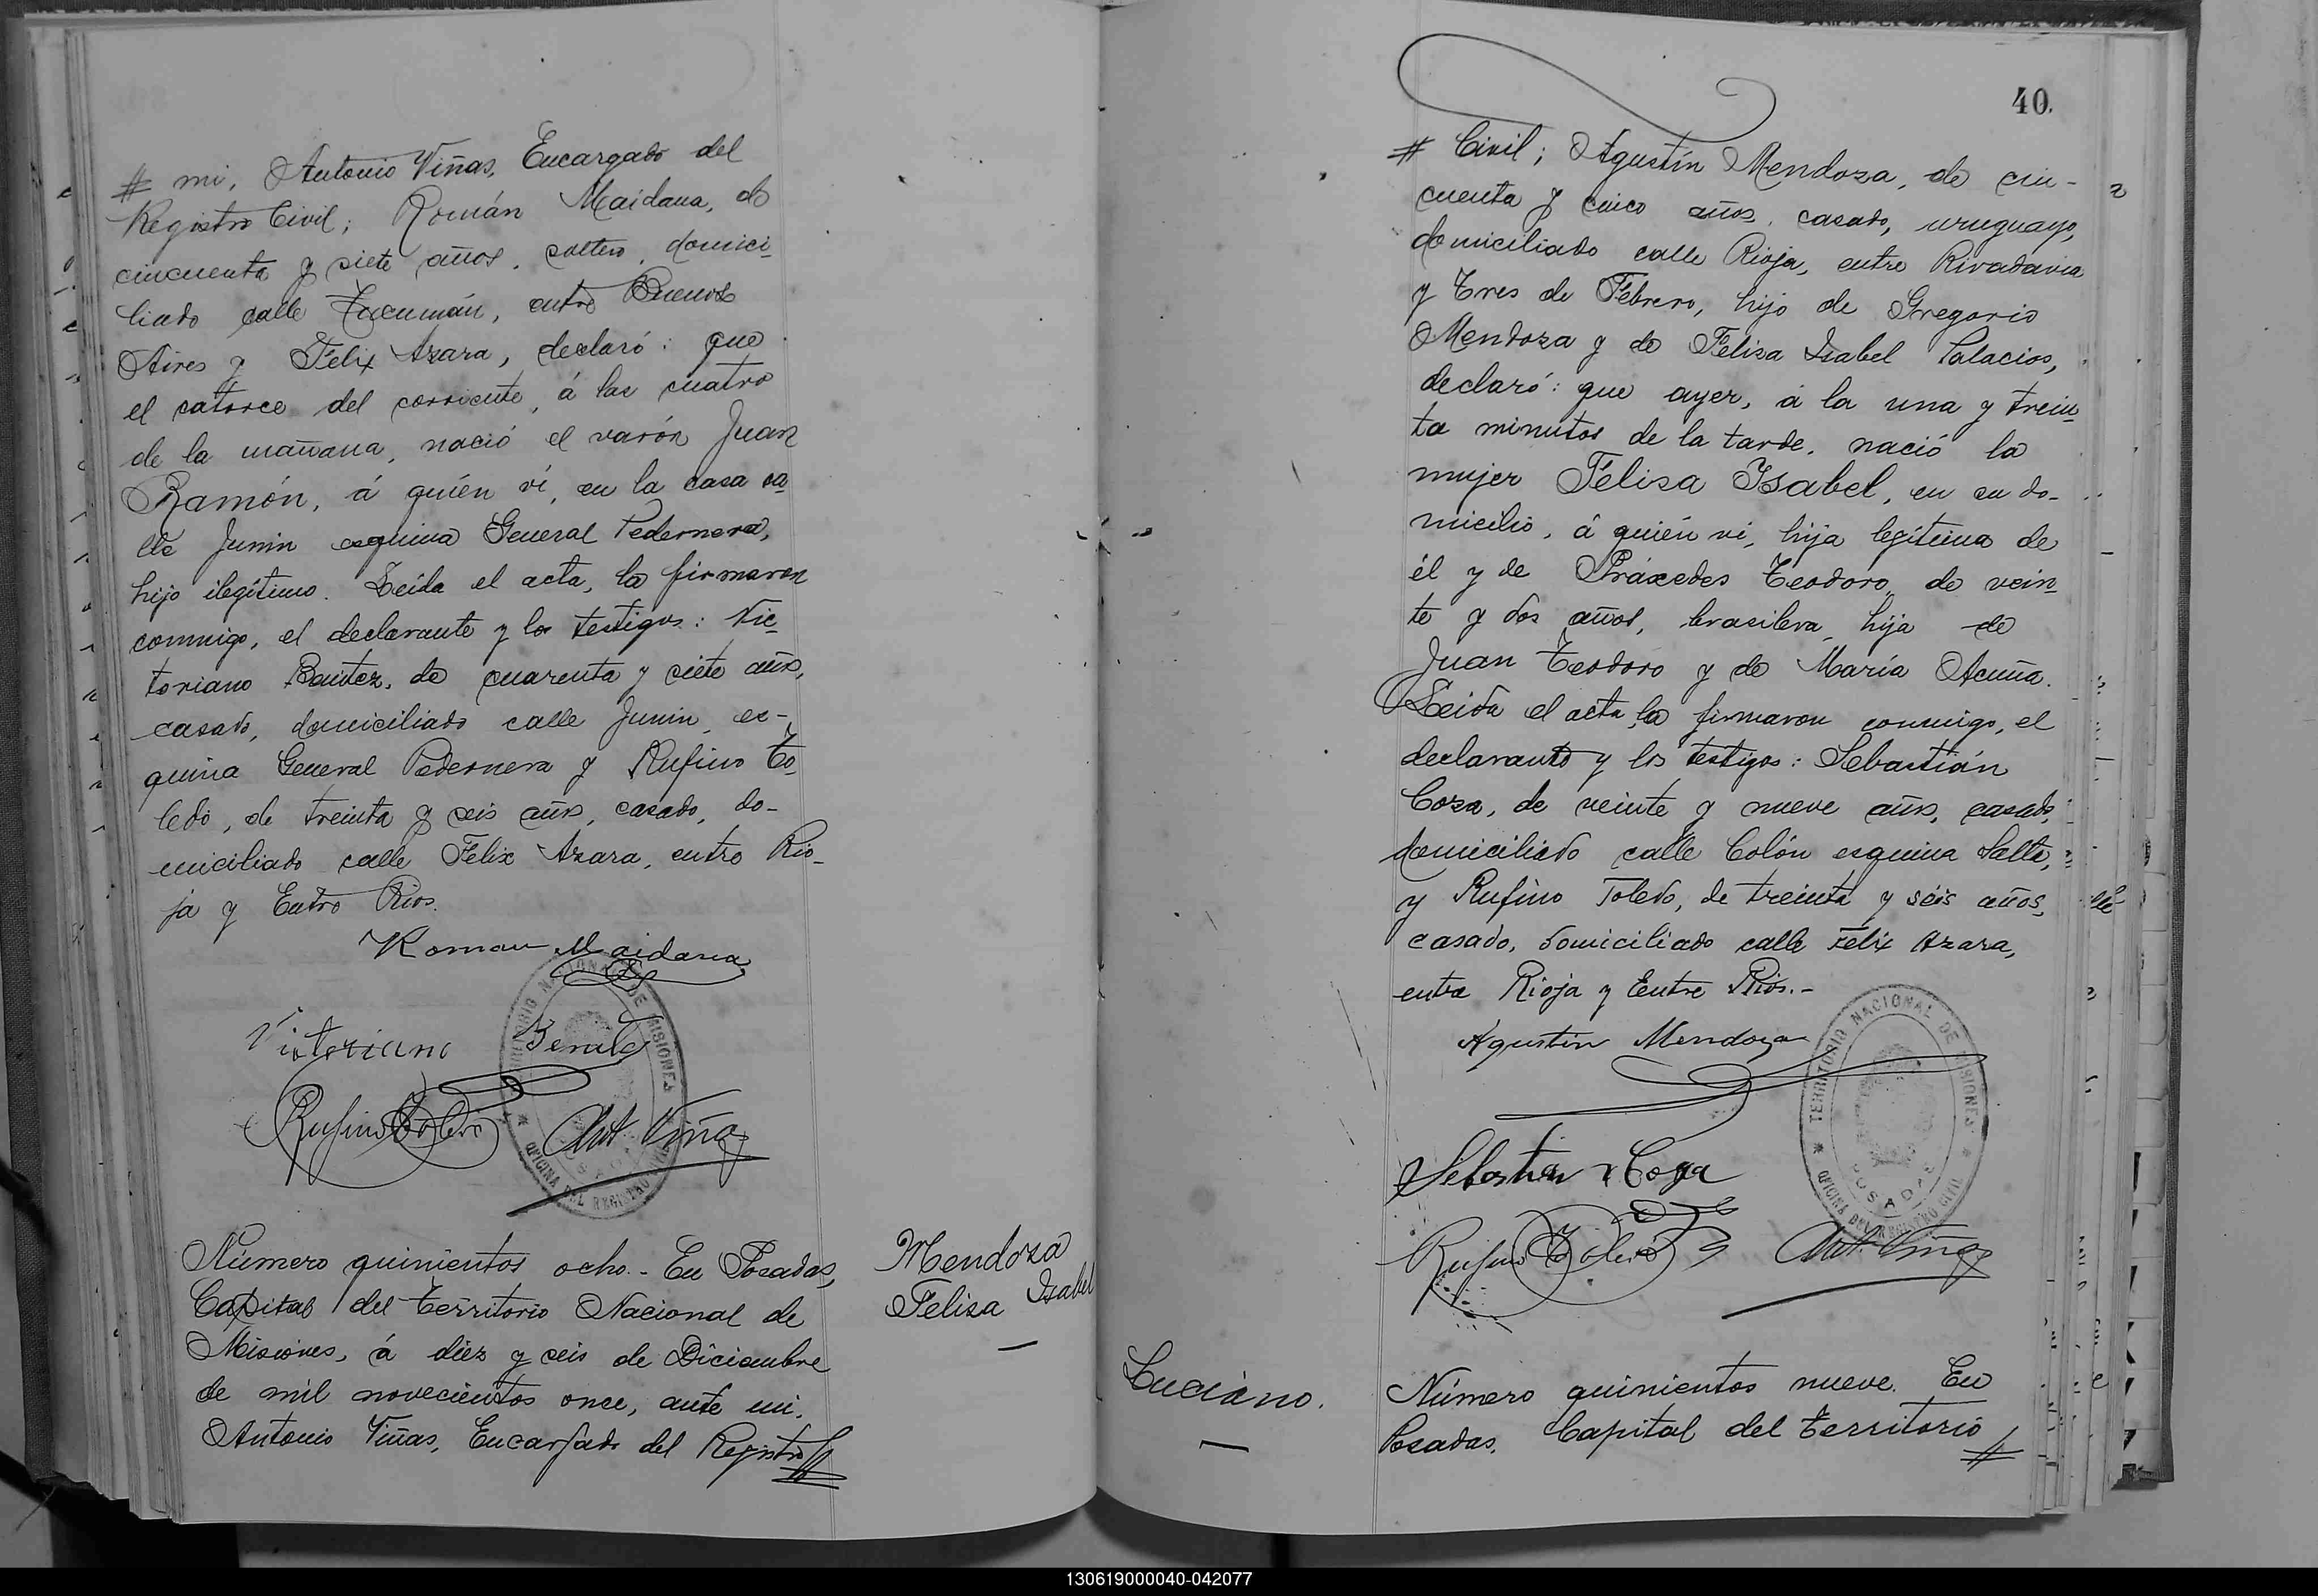 # mi, Antonio Viñas, Encargado del
Registro Civil; Román Maidana, de
cincuenta y siete años, soltero, domici-
liado calle Tucumán, entre Buenos
Aires y Félix Azara, declaró: que
el catorce del corriente, á las cuatro
de la mañana, nació el varón Juan
Ramón, á quién ví, en la casa ca-
lle Junin esquina General Pedernera,
hijo ilegítimo. Leida el acta, la firmaron
conmigo, el declarante y los testigos: Vic-
toriano Benitez, de cuarenta y siete años,
casado, domiciliado calle Junin, es-
quina General Pedernera y Rufino To-
ledo, de treinta y seis años, casado, do-
miciliado calle Félix Azara, entre Rio-
ja y Entre Rios.
Roman Maidana
Victoriano
Rufino Toledo Ant. Viñas
TERRITORIO NACIONAL DE MISIONES
OFICINA DEL REGISTRO CIVIL
Número quinientos ocho.- En Posadas,
Capital del Territorio Nacional de
Misiones, á diez y seis de Diciembre
de mil novecientos once, ante mi,
Antonio Viñas, Encargado del Registro #
Mendoza
Felisa Isabel
40.
# Civil; Agustín Mendoza, de cin-
cuenta y cinco años, casado, uruguayo,
domiciliado calle Rioja, entre Rivadavia
y Tres de Febrero, hijo de Gregorio
Mendoza y de Felisa Isabel Palacios,
declaró: que ayer, á la una y trein-
ta minutos de la tarde, nació la
mujer Felisa Isabel, en su do-
micilio, á quién ví, hija legítima de
él y de Práxedes Teodoro, de vein-
te y dos años, brasilera, hija de
Juan Teodoro y de María Acuña.
Leida el acta, la firmaron conmigo, el
declarante y los testigos: Sebastián
Coza, de veinte y nueve años, casado,
domiciliado calle Colón esquina Salta,
y Rufino Toledo, de treinta y séis años,
casado, domiciliado calle Félix Azara,
entre Rioja y Entre Rios.-
Agustin Mendoza
Sebastian Coza
Rufino Toledo Ant. Viñas
TERRITORIO NACIONAL DE MISIONES
OFICINA DEL REGISTRO CIVIL
POSADAS
Luciano.
Número quinientos nueve. En
Posadas, Capital del Territorio #
130619000040-042077